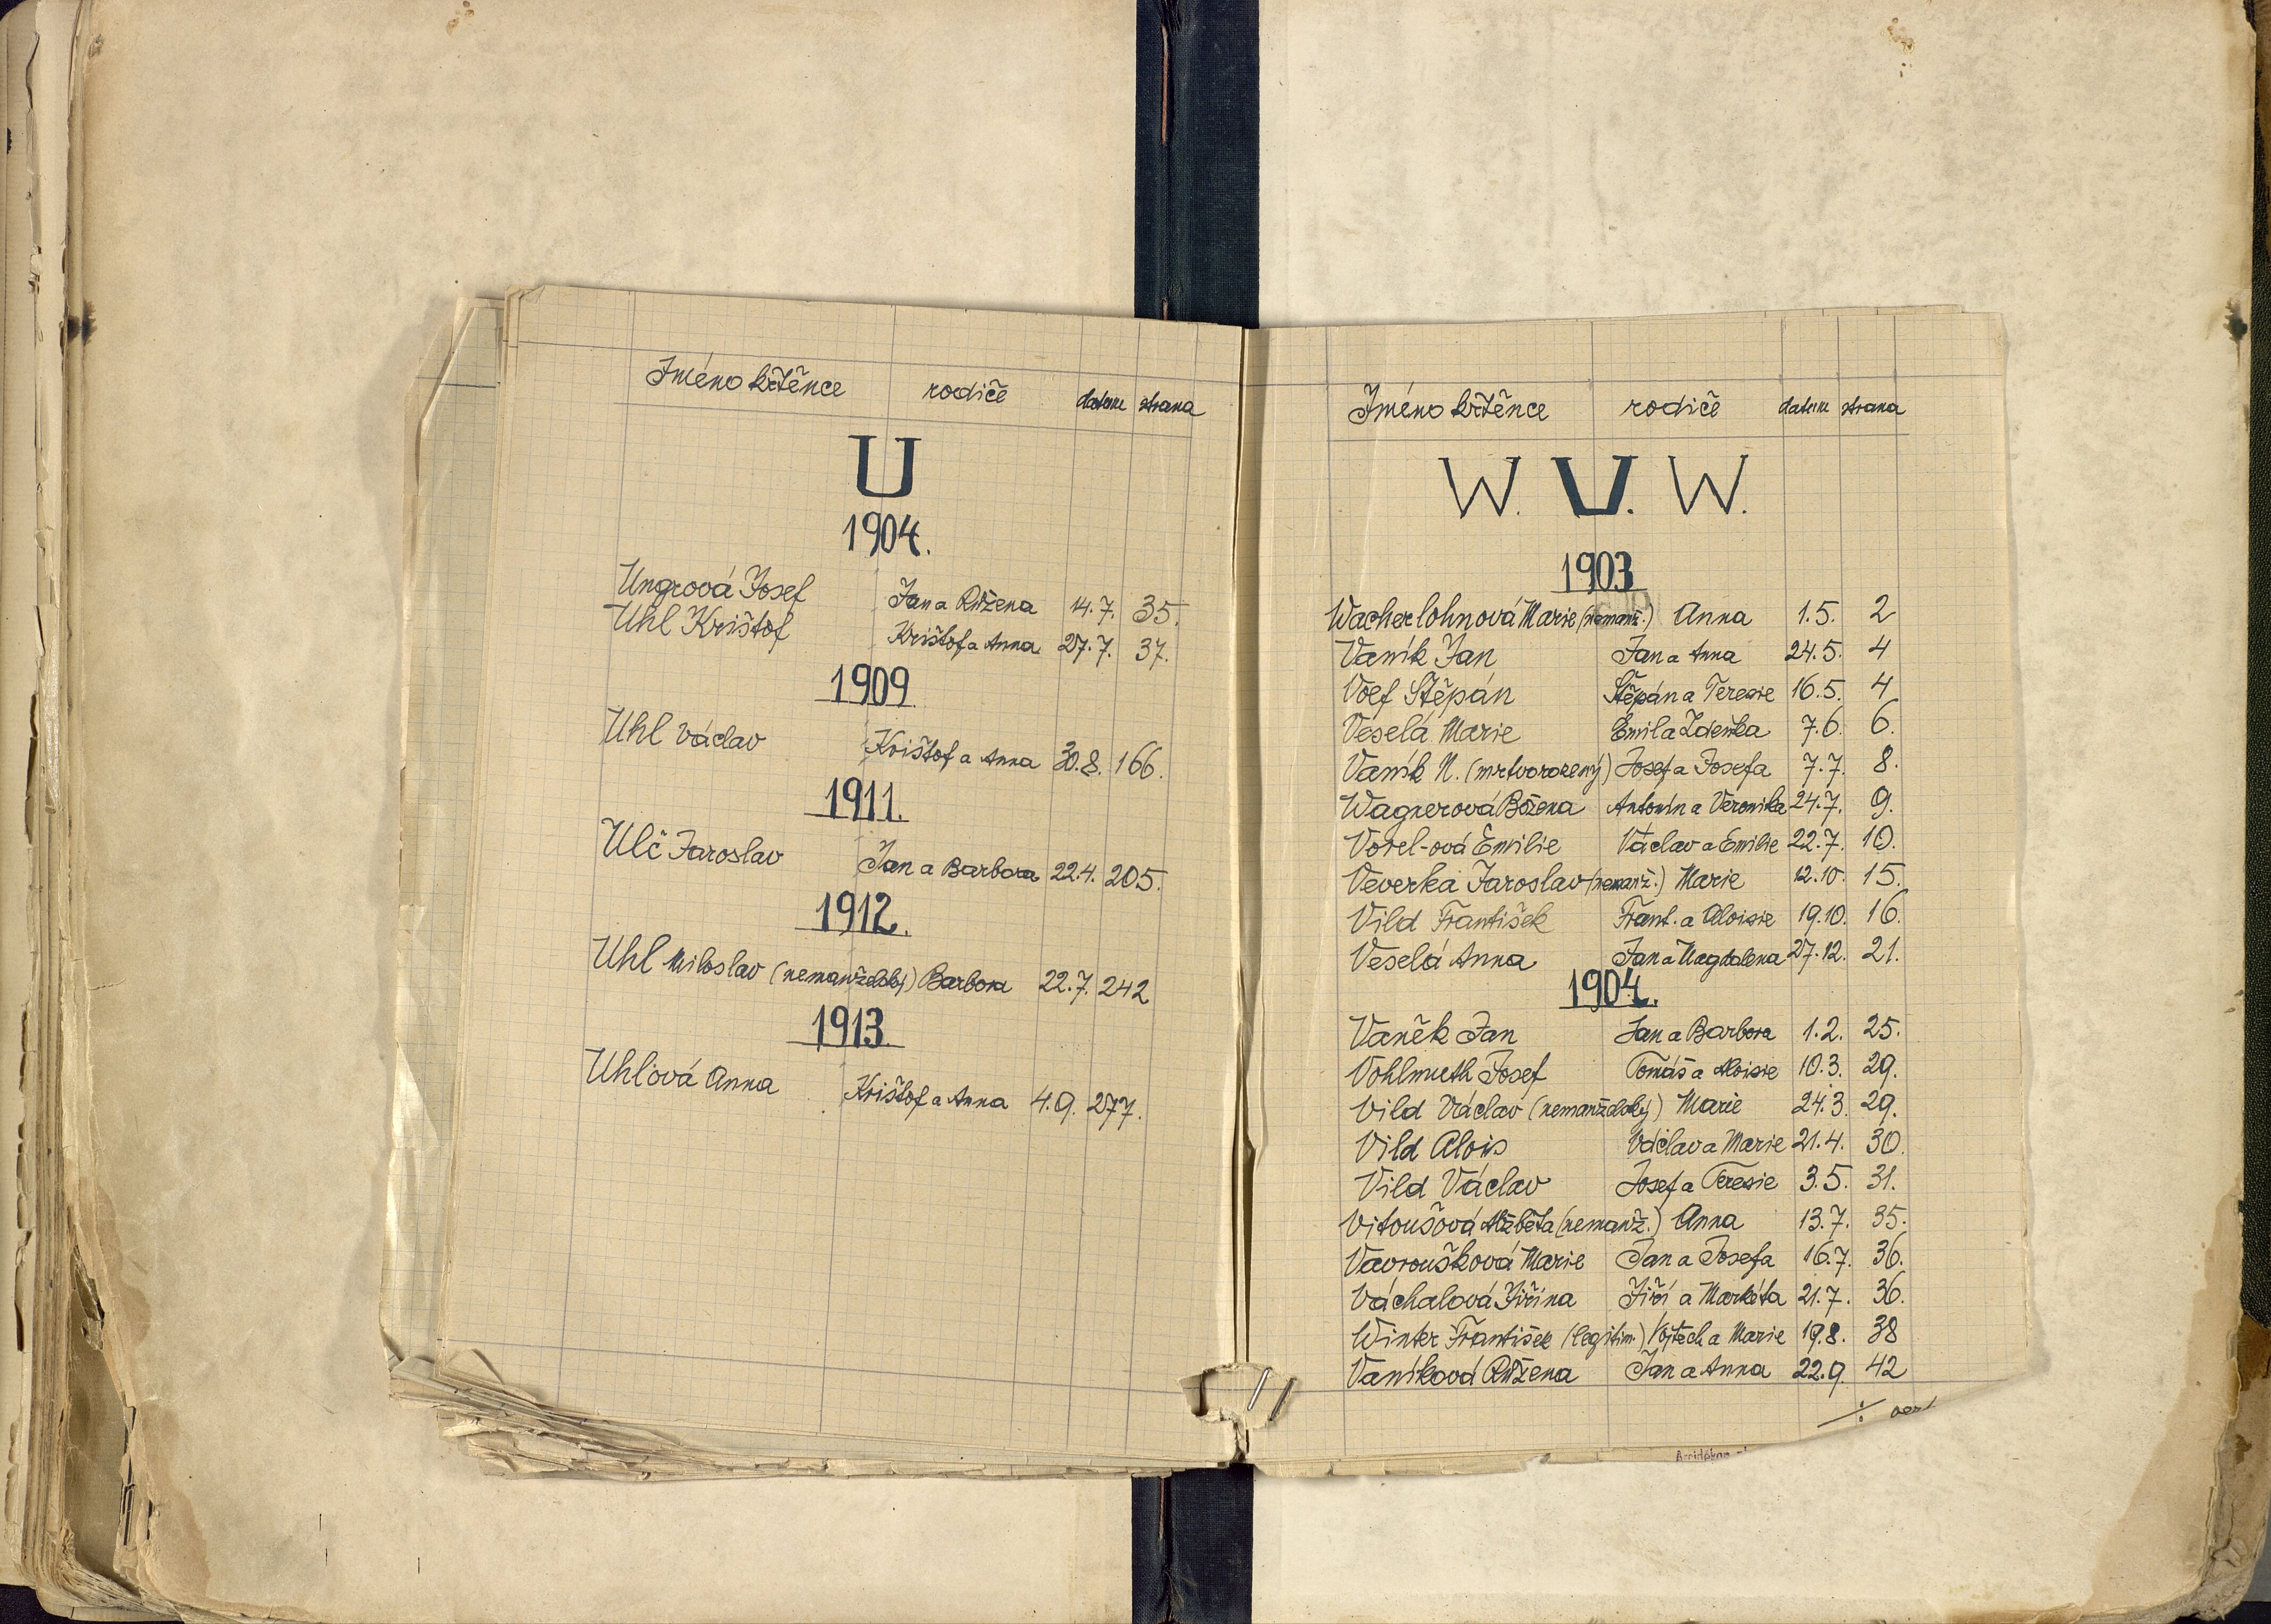 Jméno křtěnce rodiče datum strana
U
1904.
Ungrová Josef Jan a Růžena 14.7. 35.
Uhl Krištof Krištof a Anna 27.7. 37.
1909
Uhl Václav Krištof a Anna 30.8. 166.
1911.
Ulč Jaroslav Jan a Barbora 22.4. 205.
1912.
Uhl Miloslav (nemanželský) Barbora 22.7. 242
1913
Uhlová Anna Krištof a Anna 4.9. 277.
Jméno křtěnce rodiče datum strana
W. V. W.
1903
Wacherlohnová Marie (nemanž.) Anna 1.5. 2
Vaník Jan Jan a Anna 24.5. 4
Voef Štěpán Štěpán a Terezie 16.5. 4
Veselá Marie Emil a Zdeňka 7.6. 6.
Vaník N. (mrtvorozený) Josef a Josefa 7.7. 8.
Wagnerová Božena Antonín a Veronika 24.7. 9.
Vorel-ová Emilie Václav a Emilie 22.7. 10.
Veverka Jaroslav (nemanž.) Marie 12.10. 15.
Vild František Frant. a Aloisie 19.10. 16.
Veselá Anna Jan a Magdalena 27.12. 21.
1904.
Vaněk Jan Jan a Barbora 1.2. 25.
Vohlmuth Josef Tomáš a Aloisie 10.3. 29.
Vild Václav (nemanželský) Marie 24.3. 29.
Vild Alois Václav a Marie 21.4. 30.
Vild Václav Josef a Terezie 3.5. 31.
Vitoušová Alžběta (nemanž.) Anna 13.7. 35.
Vavroušková Marie Jan a Josefa 16.7. 36.
Váchalová Jiřina Jiří a Markéta 21.7. 36.
Winter František (legitim.) Vojtěch a Marie 19.8. 38
Vaníková Růžena Jan a Anna 22.9. 42
Arciděkan